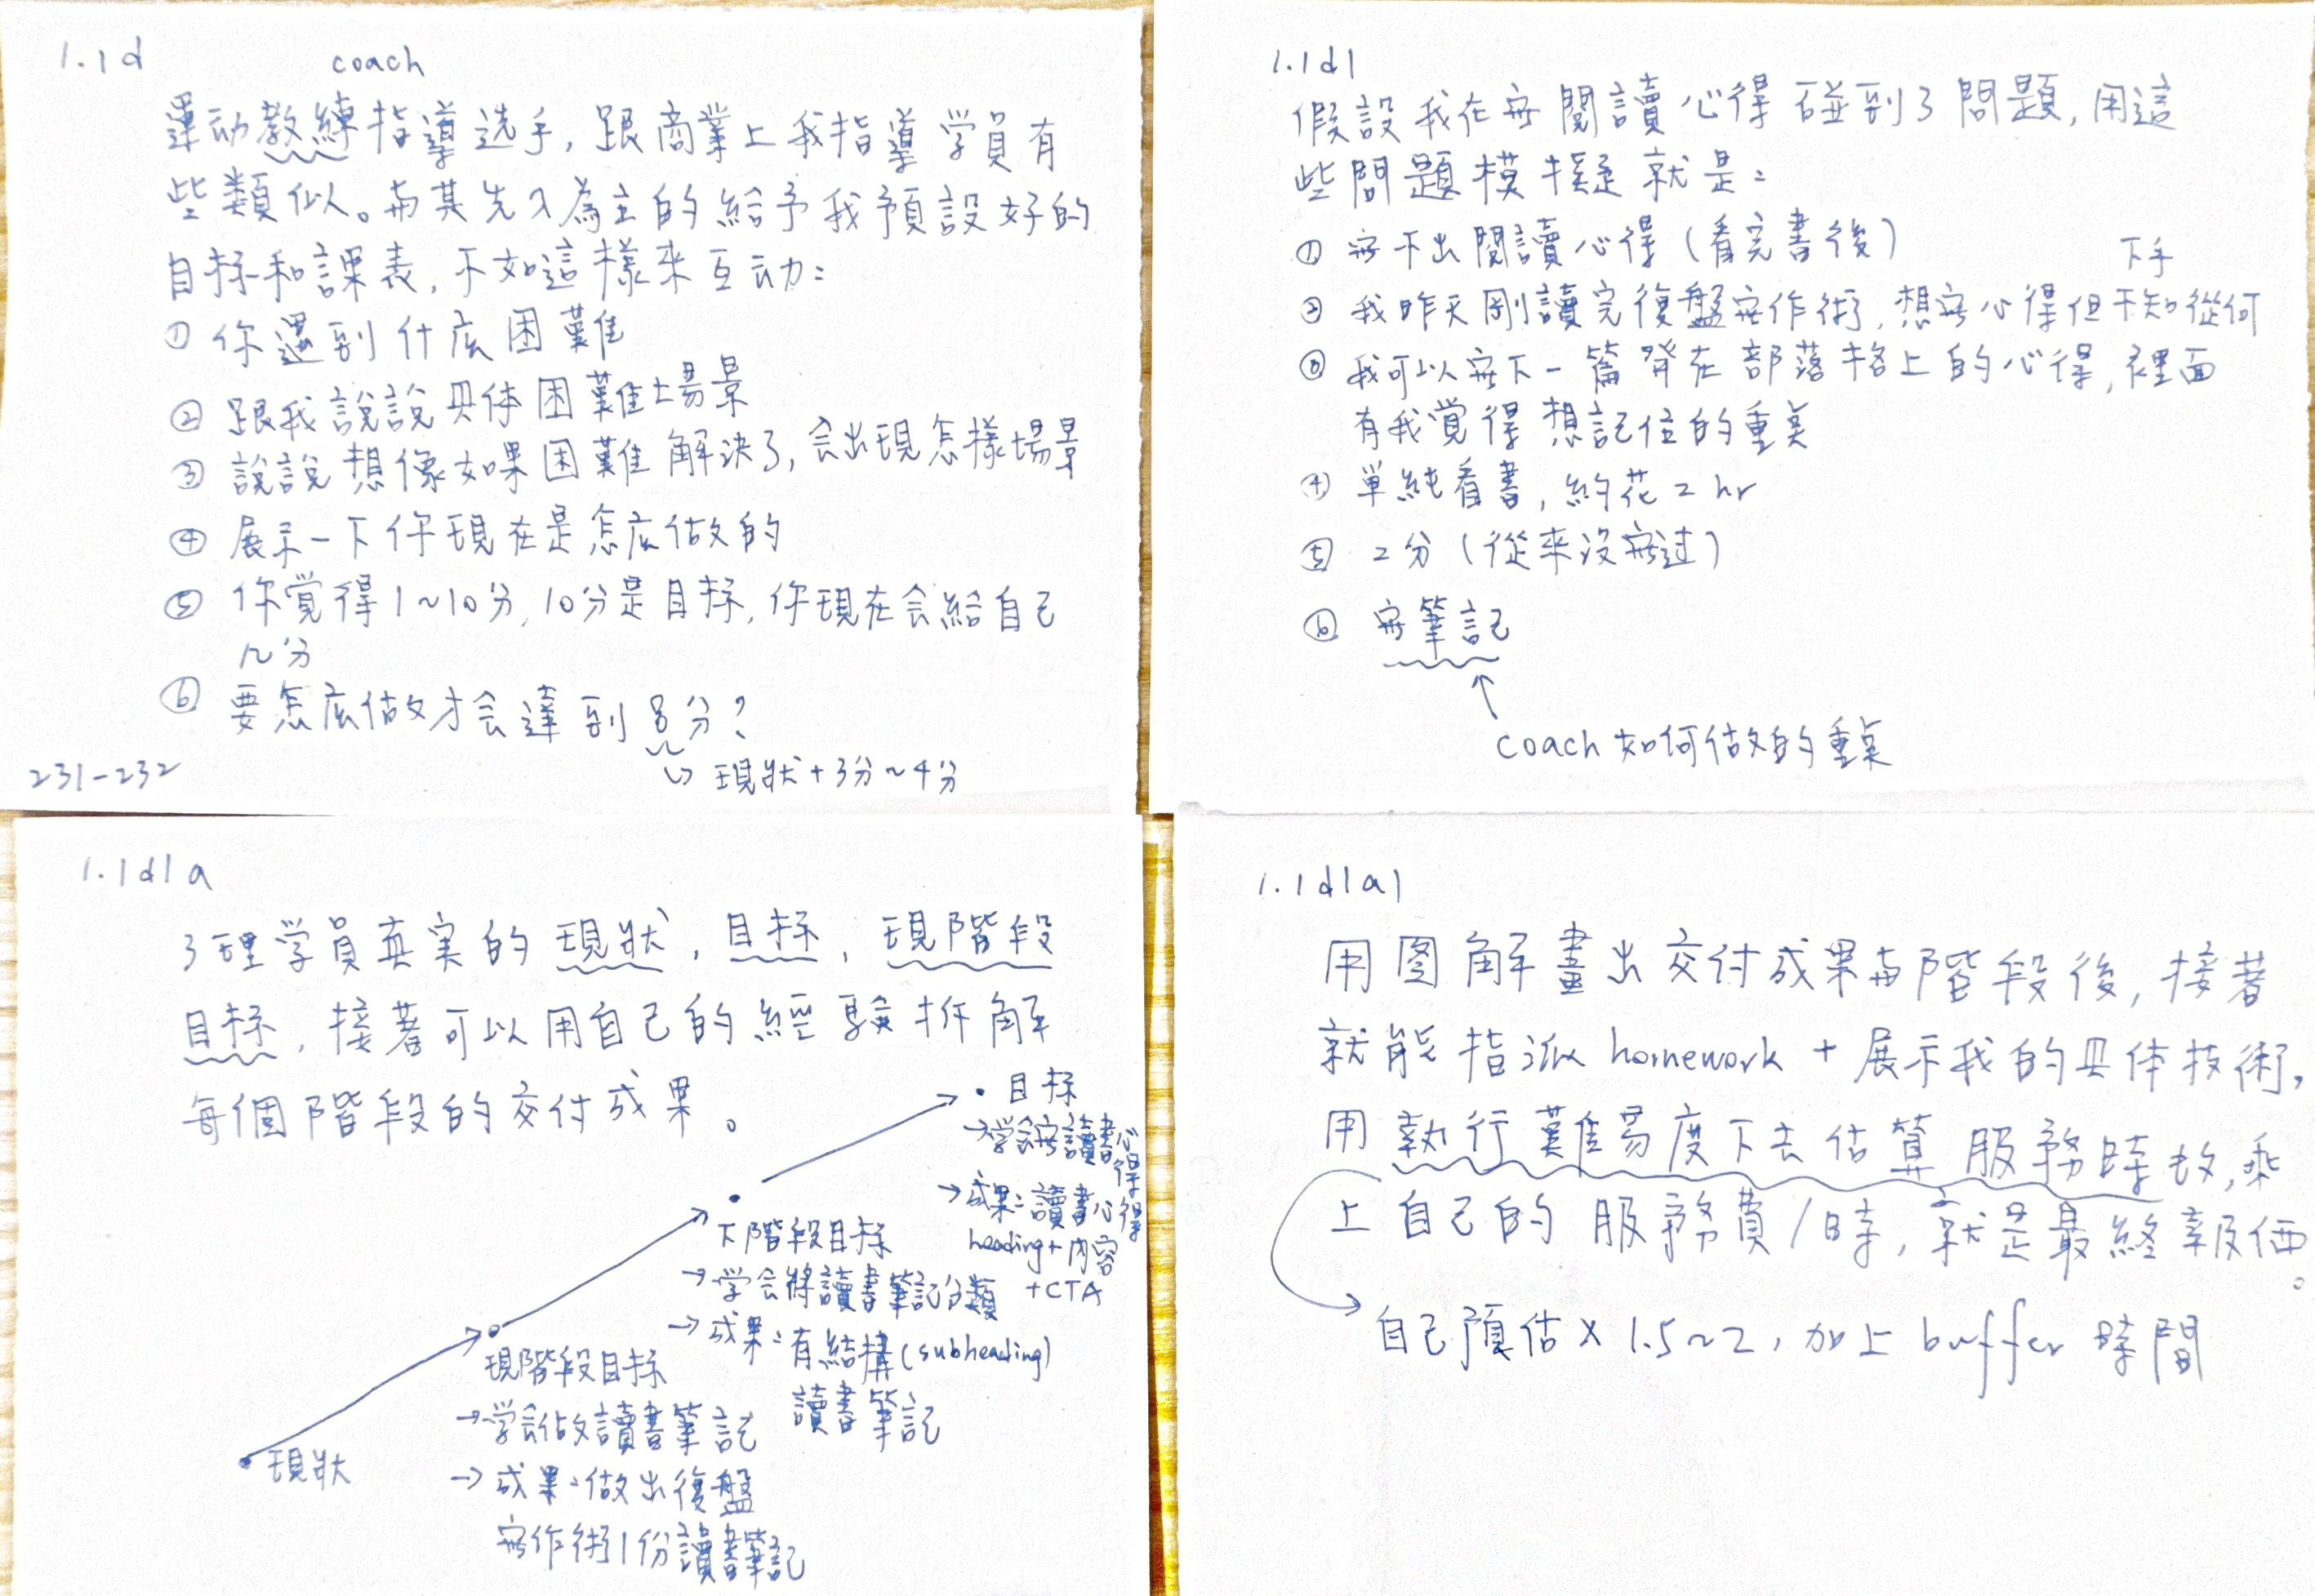 1.1d
coach
運动教練指導选手，跟商業上我指導学員有
些類似。与其先入為主的給予我預設好的
目标和課表，不如這樣來互动：
① 你遇到什広困難
② 跟我說說具体困難場景
③ 說說想像如果困難解決了，会出現怎樣場景
④ 展示一下你現在是怎広做的
⑤ 你覚得1~10分，10分是目标，你現在会給自己
几分
⑥ 要怎広做才会達到8分？
↳ 現狀+3分~4分
231-232
1.1d1
假設我在写閱讀心得碰到了問題，用這
些問題模擬就是：
① 写不出閱讀心得（看完書後）
下手
② 我昨天剛讀完復盤写作術，想写心得但不知從何
③ 我可以写下一篇發在部落格上的心得，裡面
有我覚得想記住的重点
④ 單純看書，約花2hr
⑤ 2分（從來没写过）
⑥ 写筆記
↑
coach如何做的重点
1.1d1a
了理学員真实的現狀，目标，現階段
目标，接著可以用自己的經驗拆解
每個階段的交付成果。
目标
→学会写讀書心得
→成果：讀書心得
heading+内容
+CTA
下階段目标
→学会將讀書筆記分類
→成果：有結構(subheading)
讀書筆記
現階段目标
→学会做讀書筆記
→成果：做出復盤
写作術1份讀書筆記
現狀
1.1d1a1
用图解畫出交付成果与階段後，接著
就能指派homework+展示我的具体技術，
用執行難易度下去估算服務時数，乘
上自己的服務費/時，就是最終報価。
自己預估×1.5~2，加上buffer時間